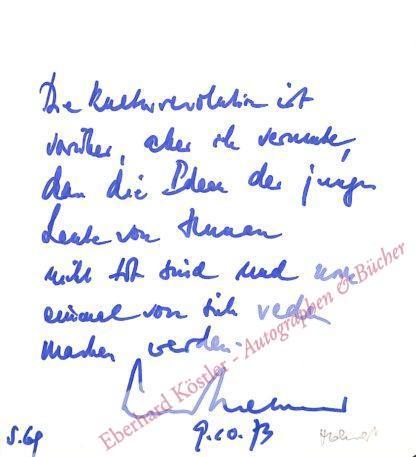 Die Kulturrevolution ist
vorüber, aber ich vermute,
dass die Ideen der jungen
Leute von Hunan
nicht tot sind und noch
einmal von sich reden
machen werden.
S. 69
9.10.73
Eberhard Köstler - Autographen & Bücher